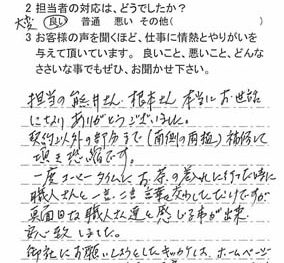 2 担当者の対応は、どうでしたか？
大変 良い 普通 悪い その他( )
3 お客様の声を聞くほど、仕事に情熱とやりがいを
与えて頂いています。 良いこと、悪いこと、どんな
ささいな事でもぜひ、お聞かせ下さい。
担当の熊井さん、根本さん 本当にお世話
になり ありがとうございました。
契約以外の部分まで(南側の角極) 補修して
頂き恐縮です。
一度コーヒータイムに お茶の差入れに行った時に
職人さんと一言二言 言葉を交わしただけですが
真面目な職人さん達と感じる事が出来
安心致しました。
御社にお願いしようとしたキッカケは、ホームページ